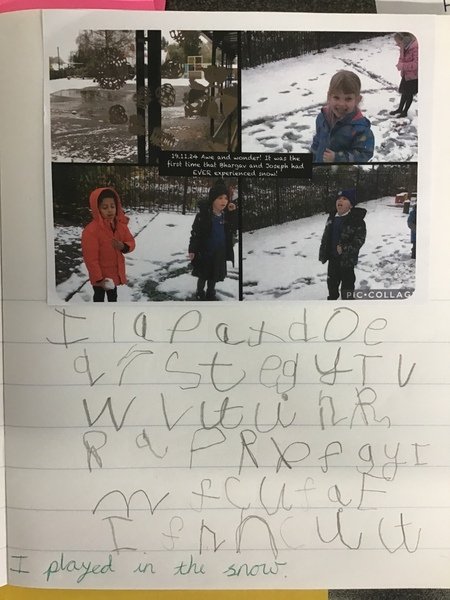 19.11.24 Awe and wonder! It was the
first time that Bhargav and Joseph had
EVER experienced snow!
PIC•COLLAG
I l a P a x d O e
a r S t e g y T V
W V U t u i n R
R a P R x f g y I
m f C U f a E
I f n n C U U t
I played in the snow.